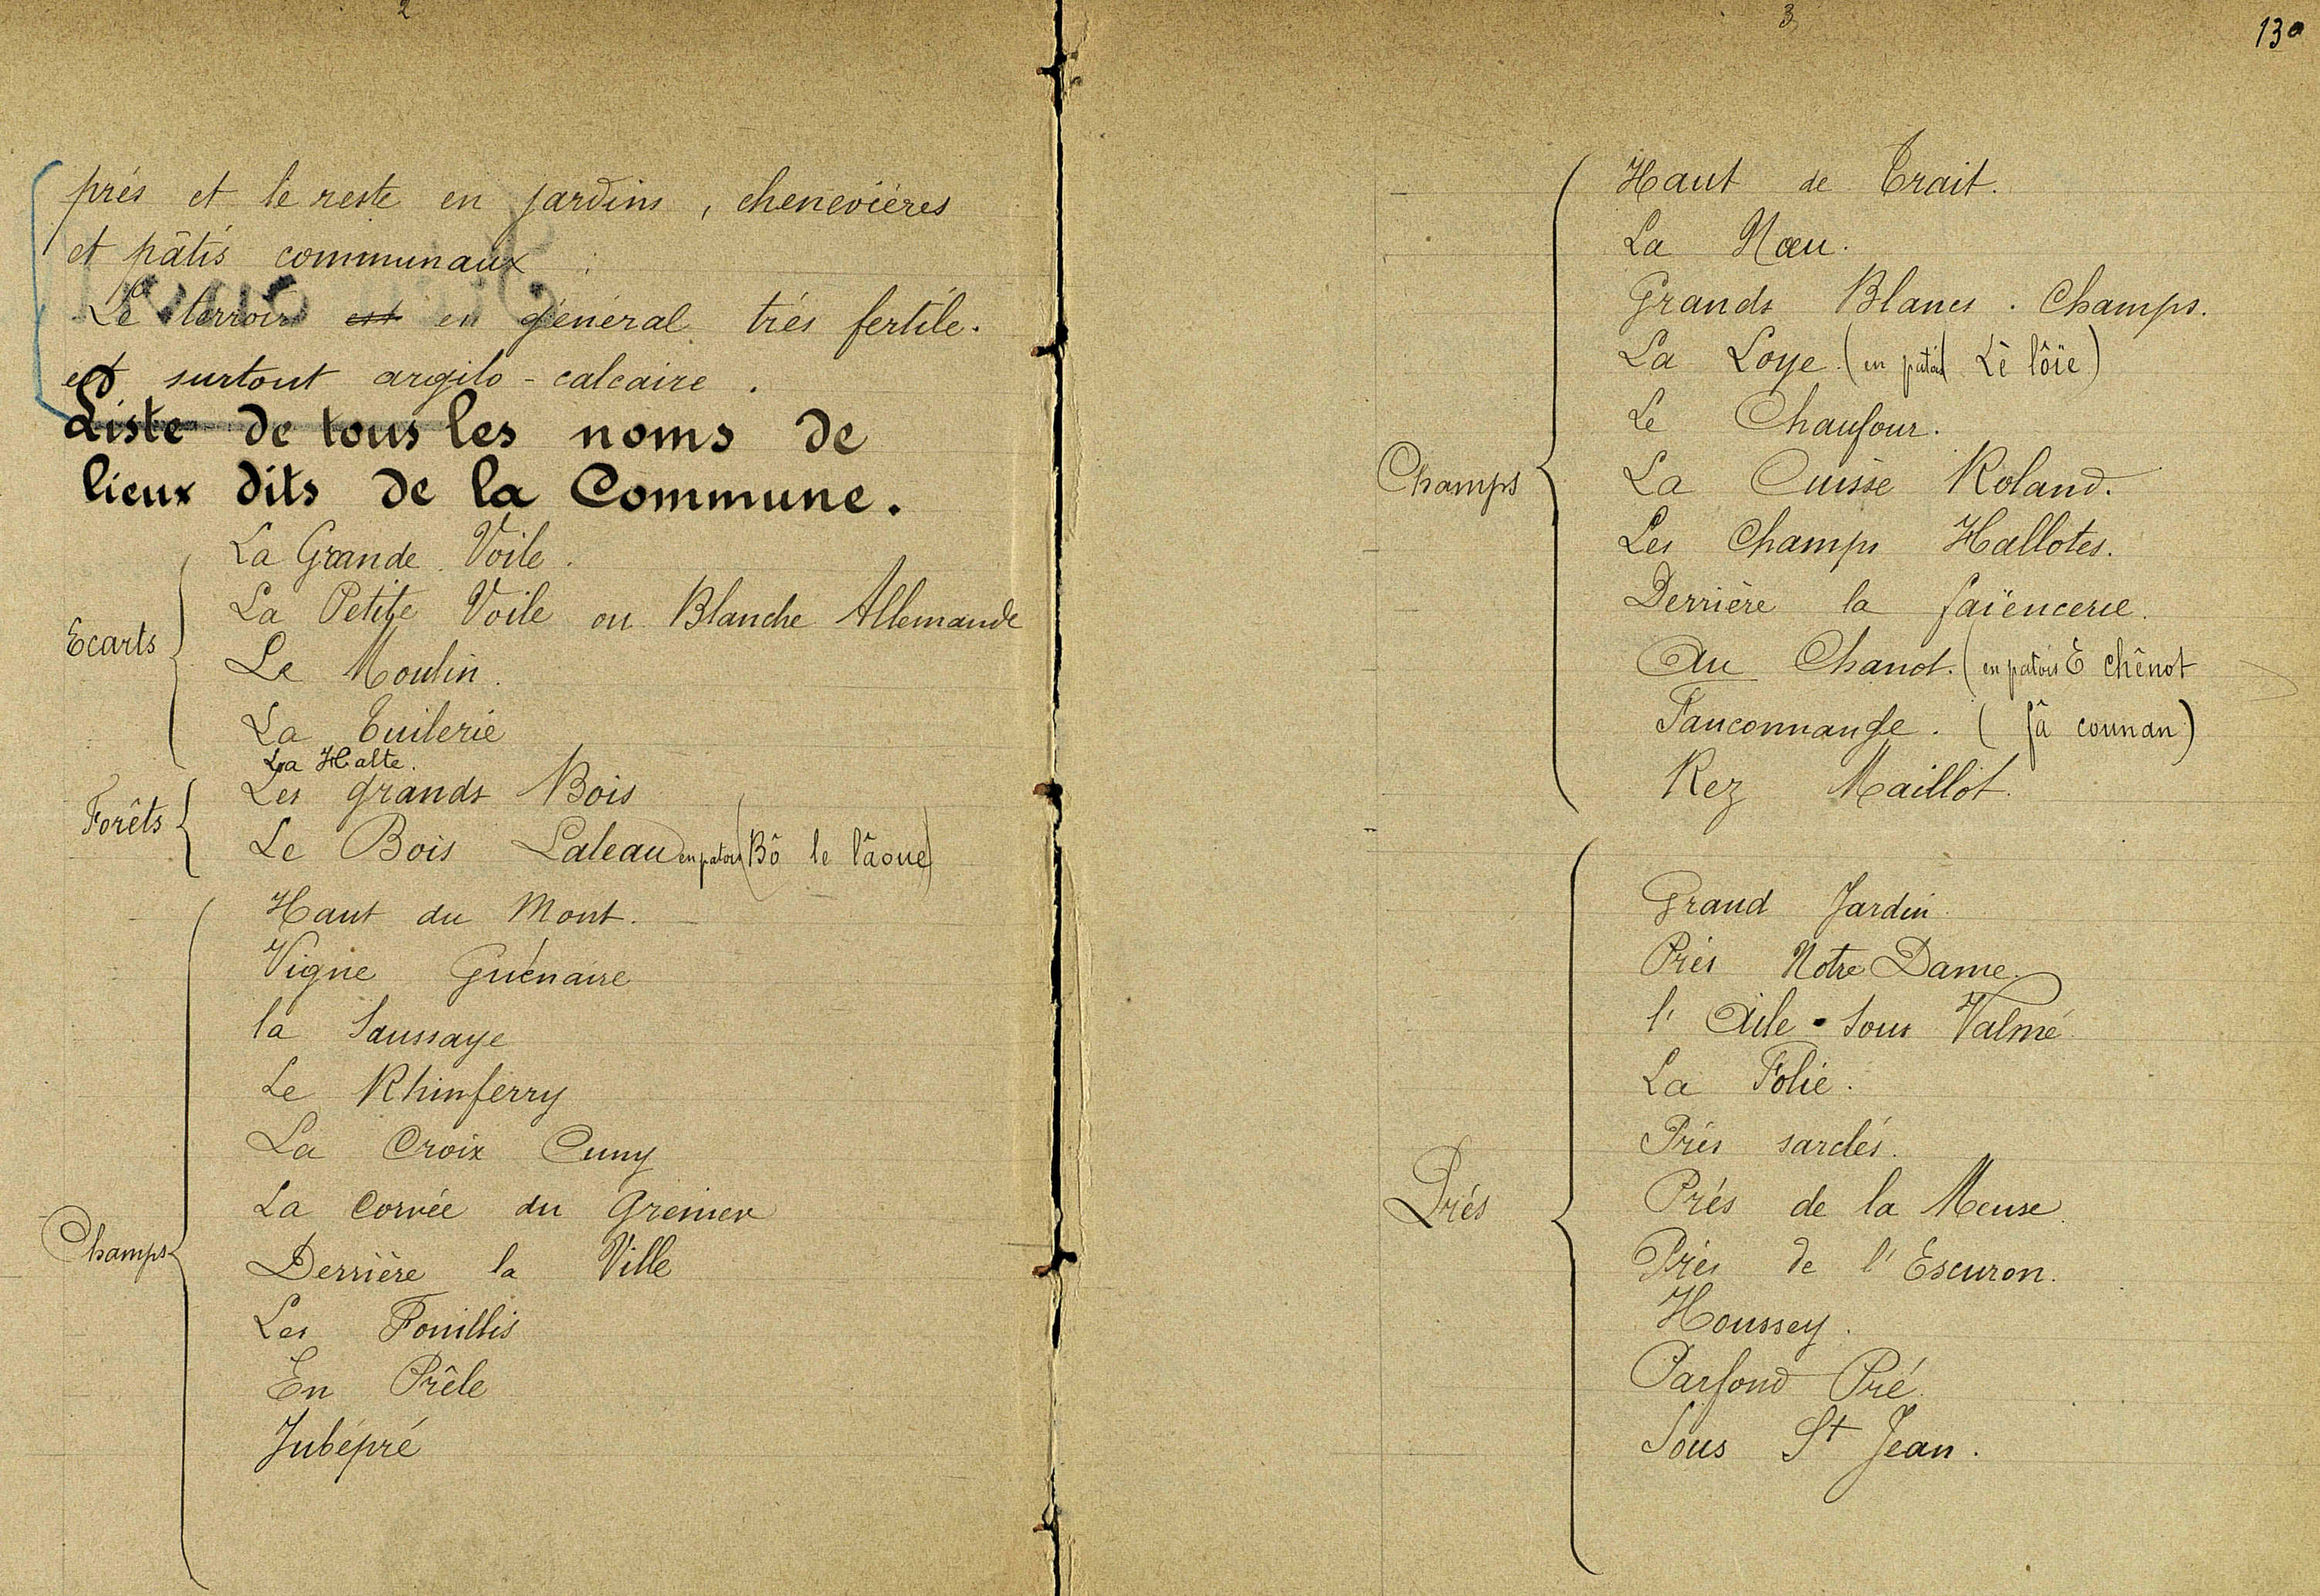 2
prés et le reste en jardins, chenevières
et pâtis communaux
Le terroir est en général très fertile.
est surtout argilo-calcaire.
Liste de tous les noms de
lieux dits de la Commune.
Ecarts
La Grande Voile.
La Petite Voile ou Blanche Allemande
Le Moulin.
La Tuilerie
La Halte.
Forêts
Les grands Bois
Le Bois Laleau en patois (Bô le lâoue)
Champs
Haut du Mont.
Vigne Guénaire
la Saussaye
Le Rhinferry
La Croix Cuny
La Corvée du Grenier
Derrière la Ville
Les Fouillis
En Prêle
Jubépré
3
130
Champs
Haut de Trait.
La Nœu.
Grands Blancs. Champs.
La Loye. (en patois Lè lôïe)
Le Chaufour.
La Cuisse Roland.
Les Champs Hallotes.
Derrière la faïencerie.
Au Chanot. (en patois E chênot
Fauconnange. (fâ counan)
Rez Maillot.
Prés
Grand Jardin.
Prés Notre Dame.
l'Aile-sous Valmé
La Folie.
Prés sarclés.
Prés de la Meuse.
Prés de l'Escuron.
Houssey.
Parfond Pré.
Sous St Jean.